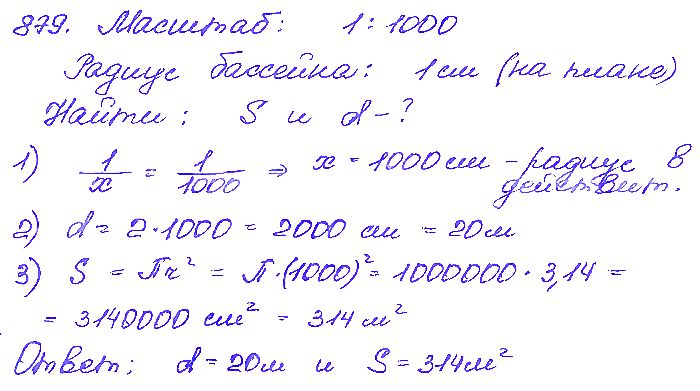 879. Масштаб: 1 : 1000
Радиус бассейна: 1 см (на плане)
Найти: S и d - ?
1) 1/x = 1/1000 ⇒ x = 1000 см - радиус в действит.
2) d = 2·1000 = 2000 см = 20 м
3) S = Пr² = П·(1000)² = 1000000 · 3,14 =
= 3140000 см² = 314 м²
Ответ: d = 20м и S = 314м²